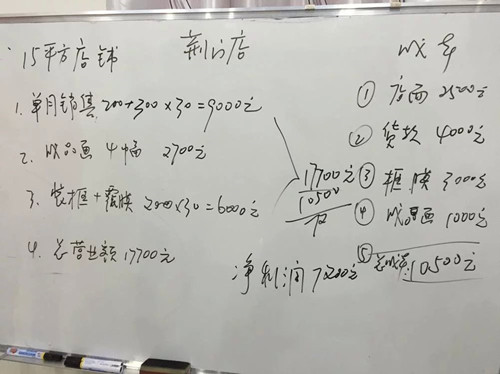 15平方店铺
荆门店
1. 单月销售 200+300×30=9000元
2. 成品画 4幅 2700元
3. 装框+覆膜 200×30=6000元
4. 总营业额 17700元
17700元
10500
净利润7200元
成本
① 店面 2500元
② 货款 4000元
③ 框膜 3000元
④ 成品画 1000元
⑤ 总成本 10500元